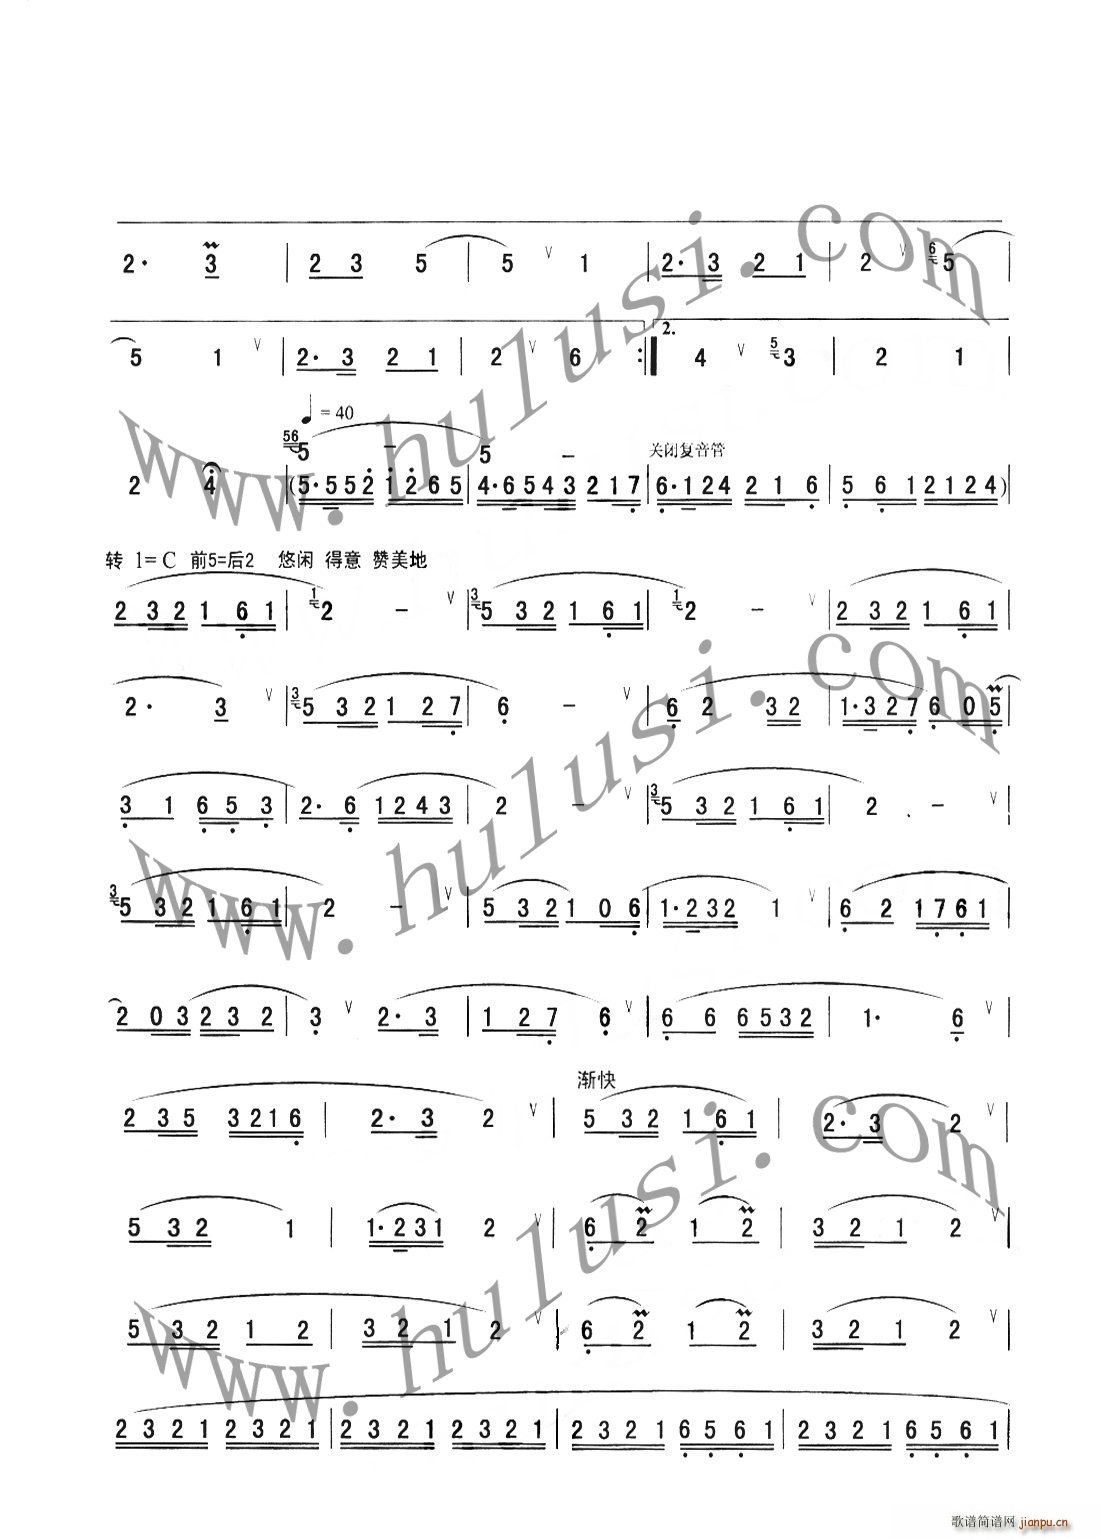 2· 3 | 2 3 5 | 5 ∨ 1 | 2· 3 2 1 | 2 ∨ 6 5 |
5 1 ∨ | 2· 3 2 1 | 2 ∨ 6 :| 2. 4 ∨ 5 3 | 2 1 |
♩= 40
56 5 – 5 – 关闭复音管
2 4 | (5·552 1265 | 4·6543 217 | 6·124 216 | 5 6 1 2124) |
转 1=C 前5=后2 悠闲 得意 赞美地
2 32 1 61 | 1 2 – ∨ | 3 5 32 1 61 | 1 2 – ∨ | 2 32 1 61 |
2· 3 ∨ | 3 5 32 1 27 | 6 – ∨ | 6 2 32 | 1·327 6 05 |
3 1 6 5 3 | 2· 6 1243 | 2 – ∨ | 3 5 32 1 61 | 2 – ∨ |
3 5 32 1 61 | 2 – ∨ | 5 32 1 06 | 1·232 1 ∨ | 6 2 1761 |
2 03 2 3 2 | 3 ∨ 2· 3 | 1 27 6 ∨ | 6 6 6532 | 1· 6 ∨ |
渐快
2 35 3216 | 2· 3 2 ∨ | 5 32 1 61 | 2· 3 2 ∨ |
5 32 1 | 1·231 2 ∨ | 6 2 1 2 | 3 2 1 2 ∨ |
5 32 1 2 | 3 2 1 2 ∨ | 6 2 1 2 | 3 2 1 2 ∨ |
2321 2321 | 2321 2321 | 2321 6561 | 2321 6561 |
www.hulusi.com
www.hulusi.com
www.hulusi.com
歌谱简谱网 jianpu.cn